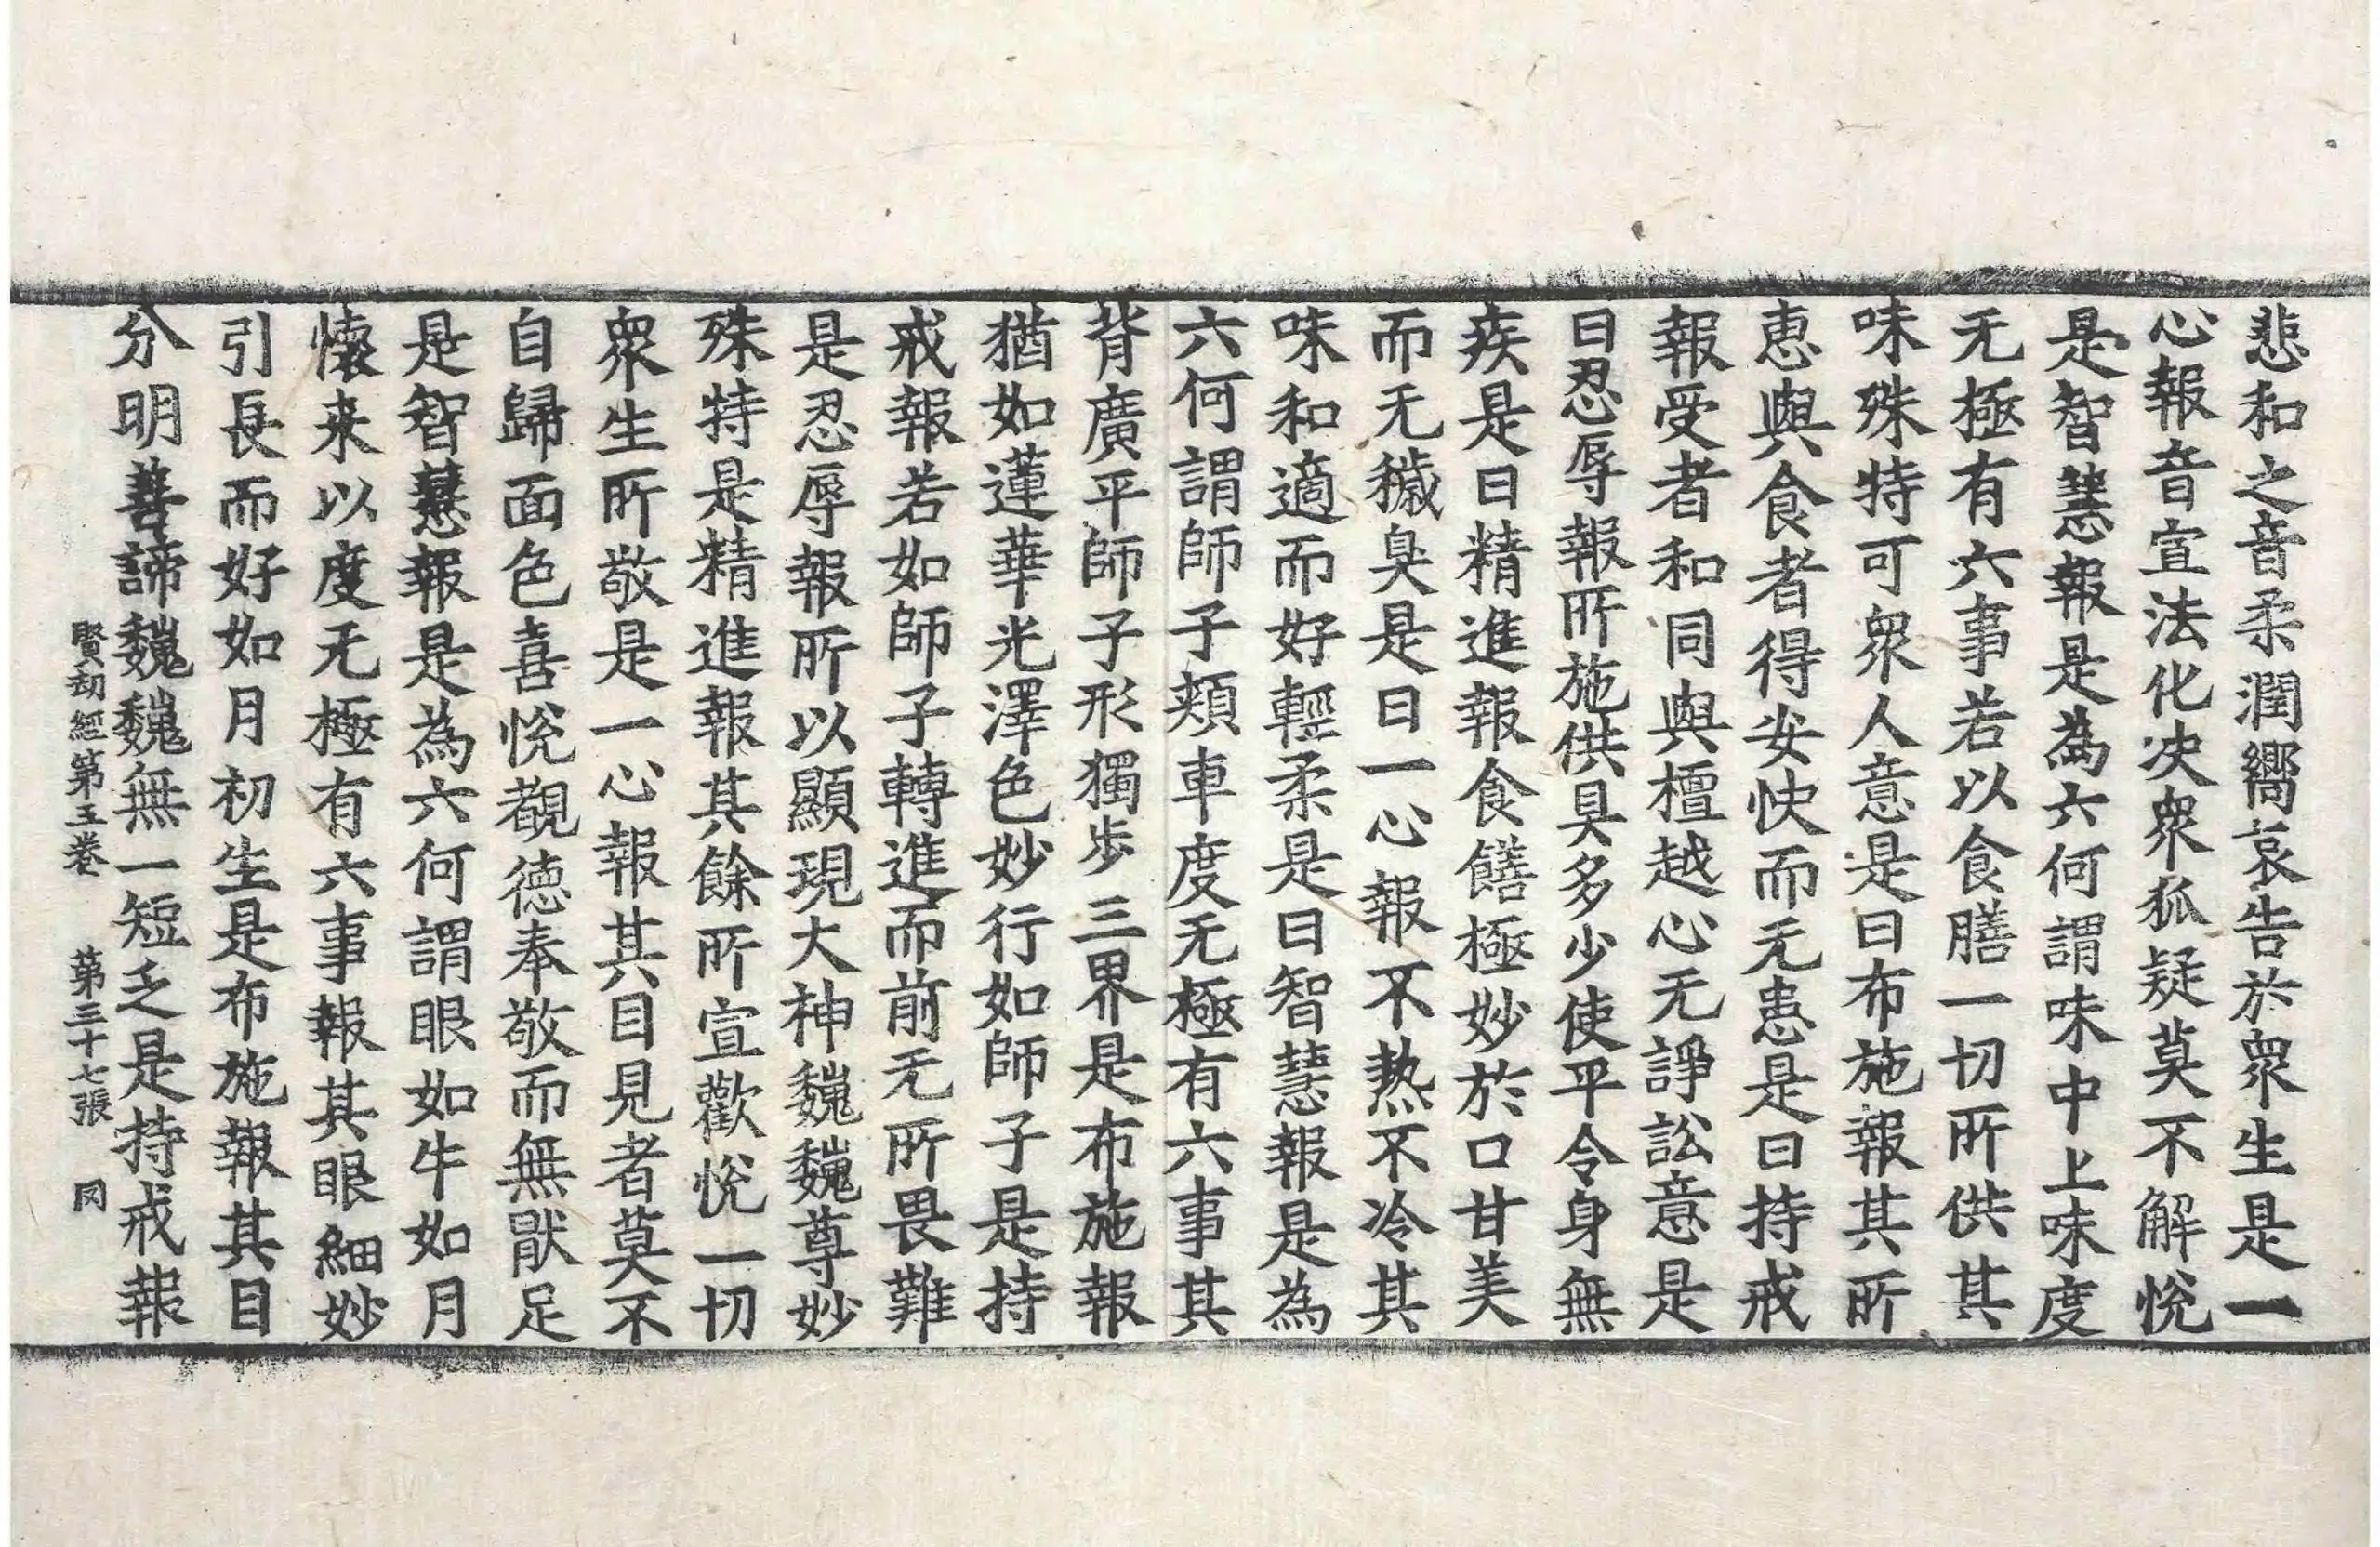 悲和之音柔潤嚮哀告於衆生是一
心報音宣法化决衆狐疑莫不解悅
是智慧報是為六何謂味中上味度
无極有六事若以食膳一切所供其
味殊特可衆人意是曰布施報其所
恵與食者得安快而无患是曰持戒
報受者和同與檀越心无諍訟意是
曰忍辱報所施供具多少使平令身無
疾是曰精進報食饍極妙於口甘美
而无穢臭是曰一心報不熱不冷其
味和適而好輕柔是曰智慧報是為
六何謂師子頰車度无極有六事其
背廣平師子形獨步三界是布施報
猶如蓮華光澤色妙行如師子是持
戒報若如師子轉進而前无所畏難
是忍辱報所以顯現大神巍巍尊妙
殊特是精進報其餘所宣歡悅一切
衆生所敬是一心報其目見者莫不
自歸面色喜悅覩德奉敬而無猒足
是智慧報是為六何謂眼如牛如月
懷来以度无極有六事報其眼細妙
引長而好如月初生是布施報其目
分明善諦巍巍無一短乏是持戒報
賢劫經第五卷 第三十七張 同